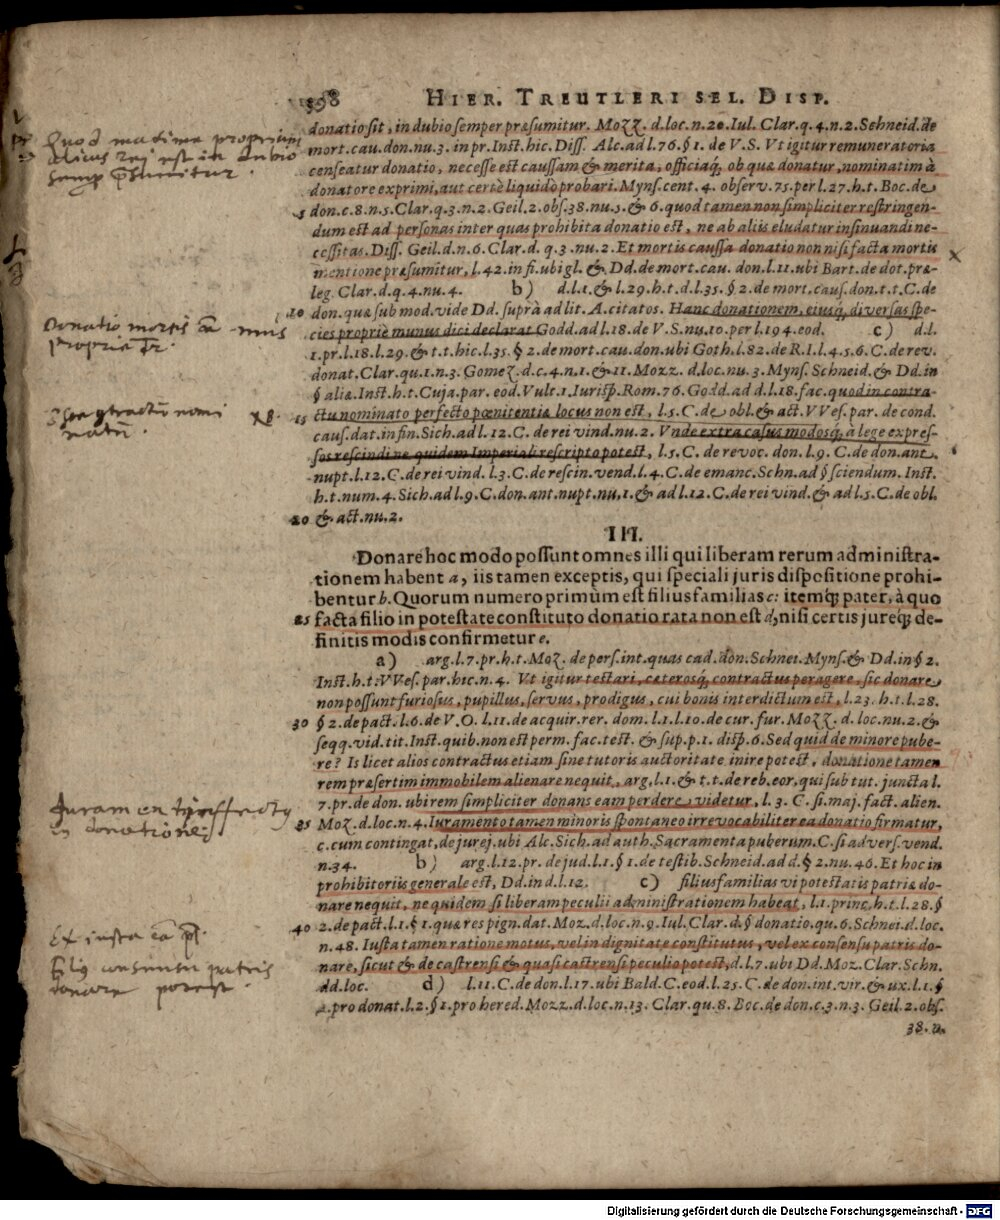 398 HIER. TREUTLERI SEL. DISP.
donatio sit, in dubio semper præsumitur. Mozz. d. loc. n. 20. Iul. Clar. q. 4. n. 2. Schneid. de
mort. cau. don. nu. 3. in pr. Inst. hic. Diss. Alc. ad l. 76. § 1. de V. S. Vt igitur remuneratoria
censeatur donatio, necesse est caussam & merita, officiaq́, ob quæ donatur, nominatim à
donatore exprimi, aut certè liquidò probari. Myns. cent. 4. observ. 75. per l. 27. h. t. Boc. de
5 don. c. 8. n. 5. Clar. q. 3. n. 2. Geil. 2. obs. 38. nu. 5. & 6. quod tamen non simpliciter restringen-
dum est ad personas inter quas prohibita donatio est, ne ab aliis eludatur insinuandi ne-
cessitas. Diss. Geil. d. n. 6. Clar. d. q. 3. nu. 2. Et mortis caussa donatio non nisi facta mortis
mentione præsumitur, l. 42. in fi. ubi gl. & Dd. de mort. cau. don. l. 11. ubi Bart. de dot. præ-
leg. Clar. d. q. 4. nu. 4. b) d. l. 1. & l. 29. h. t. d. l. 35. § 2. de mort. caus. don. t. t. C. de
10 don. quæ sub mod. vide Dd. suprà ad lit. A. citatos. Hanc donationem, eiusq́, diversas spe-
cies propriè munus dici declarat Godd. ad l. 18. de V. S. nu. 10. per l. 194. eod. c) d. l.
1. pr. l. 18. l. 29. & t. t. hic. l. 35. § 2. de mort. cau. don. ubi Goth. l. 82. de R. I. l. 4. 5. 6. C. de rev.
donat. Clar. qu. 1. n. 3. Gomez. d. c. 4. n. 1. & 11. Mozz. d. loc. nu. 3. Myns. Schneid. & Dd. in
§ alia. Inst. h. t. Cuja. par. eod. Vult. 1. Iurisp. Rom. 76. Godd. ad d. l. 18. fac. quod in contra-
15 ctu nominato perfecto pœnitentiæ locus non est, l. 5. C. de obl. & act. VVes. par. de cond.
caus. dat. in fin. Sich. ad l. 12. C. de rei vind. nu. 2. Vnde extra casus modosq́, à lege expres-
sos rescindi ne quidem Imperiali rescripto potest, l. 5. C. de revoc. don. l. 9. C. de don. ant.
nupt. l. 12. C. de rei vind. l. 3. C. de rescin. vend. l. 4. C. de emanc. Schn. ad § sciendum. Inst.
h. t. num. 4. Sich. ad l. 9. C. don. ant. nupt. nu. 1. & ad l. 12. C. de rei vind. & ad l. 5. C. de obl.
20 & act. nu. 2.
III.
Donare hoc modo possunt omnes illi qui liberam rerum administra-
tionem habent a, iis tamen exceptis, qui speciali juris dispositione prohi-
bentur b. Quorum numero primùm est filiusfamilias c: itemq́; pater, à quo
25 facta filio in potestate constituto donatio rata non est d, nisi certis jureq́; de-
finitis modis confirmetur e.
a) arg. l. 7. pr. h. t. Moz. de pers. int. quas cad. don. Schnei. Myns. & Dd. in § 2.
Inst. h. t. VVes. par. hic. n. 4. Vt igitur testari, ceterosq́, contractus peragere, sic donare
non possunt furiosus, pupillus, servus, prodigus, cui bonis interdictum est, l. 23. h. t. l. 28.
30 § 2. de pact. l. 6. de V. O. l. 11. de acquir. rer. dom. l. 1. l. 10. de cur. fur. Mozz. d. loc. nu. 2. &
seqq. vid. tit. Inst. quib. non est perm. fac. test. & sup. p. 1. disp. 6. Sed quid de minore pube-
re? Is licet alios contractus etiam sine tutoris auctoritate inire potest, donatione tamen
rem præsertim immobilem alienare nequit, arg. l. 1. & t. t. de reb. eor. qui sub tut. juncta l.
7. pr. de don. ubi rem simpliciter donans eam perdere videtur, l. 3. C. si. maj. fact. alien.
35 Moz. d. loc. n. 4. Iuramento tamen minoris spontaneo irrevocabiliter ea donatio firmatur,
c. cum contingat, de jurej. ubi Alc. Sich. ad auth. Sacramenta puberum. C. si advers. vend.
n. 34. b) arg. l. 12. pr. de jud. l. 1. § 1. de testib. Schneid. ad d. § 2. nu. 46. Et hoc in
prohibitoriis generale est, Dd. in d. l. 12. c) filiusfamilias vi potestatis patriæ do-
nare nequit, ne quidem si liberam peculii administrationem habeat, l. 1. princ. h. t. l. 28. §
40 2. de pact. l. 1. § 1. quæ res pign. dat. Moz. d. loc. n. 9. Iul. Clar. d. § donatio. qu. 6. Schnei. d. loc.
n. 48. Iusta tamen ratione motus, vel in dignitate constitutus, vel ex consensu patris do-
nare, sicut & de castrensi & quasi castrensi peculio potest, d. l. 7. ubi Dd. Moz. Clar. Schn.
dd. loc. d) l. 11. C. de don. l. 17. ubi Bald. C. eod. l. 25. C. de don. int. vir. & ux. l. 1. §
1. pro donat. l. 2. § 1. pro hered. Mozz. d. loc. n. 13. Clar. qu. 8. Boc. de don. c. 3. n. 3. Geil. 2. obs.
38. n.
Quod maxime proprium
alicus rei est in dubio
semp
Donatio mortis munus
proprie
nomi
natu
Juramen
donatione
Ex iusta
consensu patris
donare potest
Digitalisierung gefördert durch die Deutsche Forschungsgemeinschaft - DFG